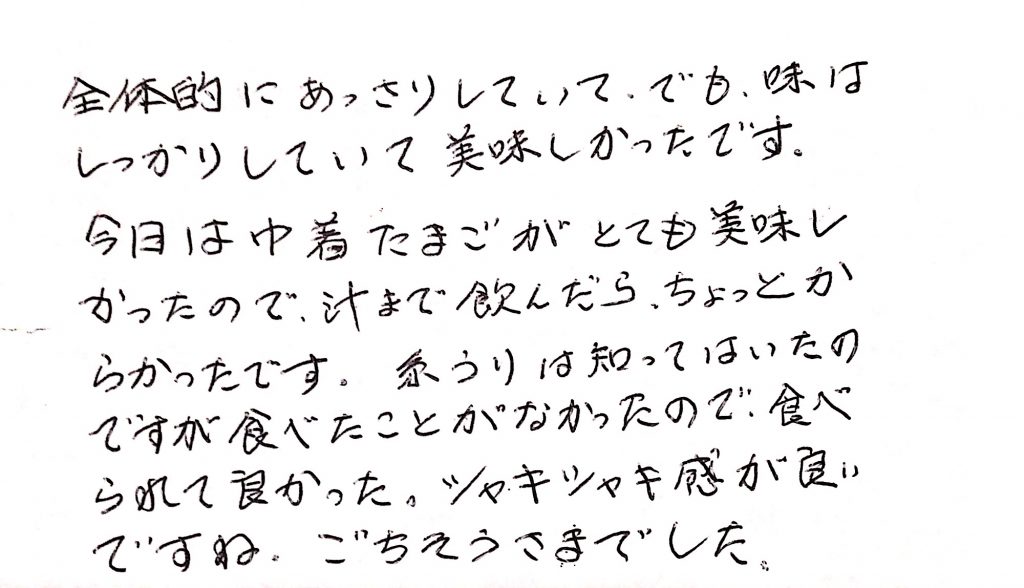 全体的にあっさりしていて、でも、味は
しっかりしていて美味しかったです。
今日は巾着たまごがとても美味し
かったので、汁まで飲んだら、ちょっとか
らかったです。糸うりは知ってはいたの
ですが食べたことがなかったので、食べ
られて良かった。シャキシャキ感が良い
ですね。ごちそうさまでした。